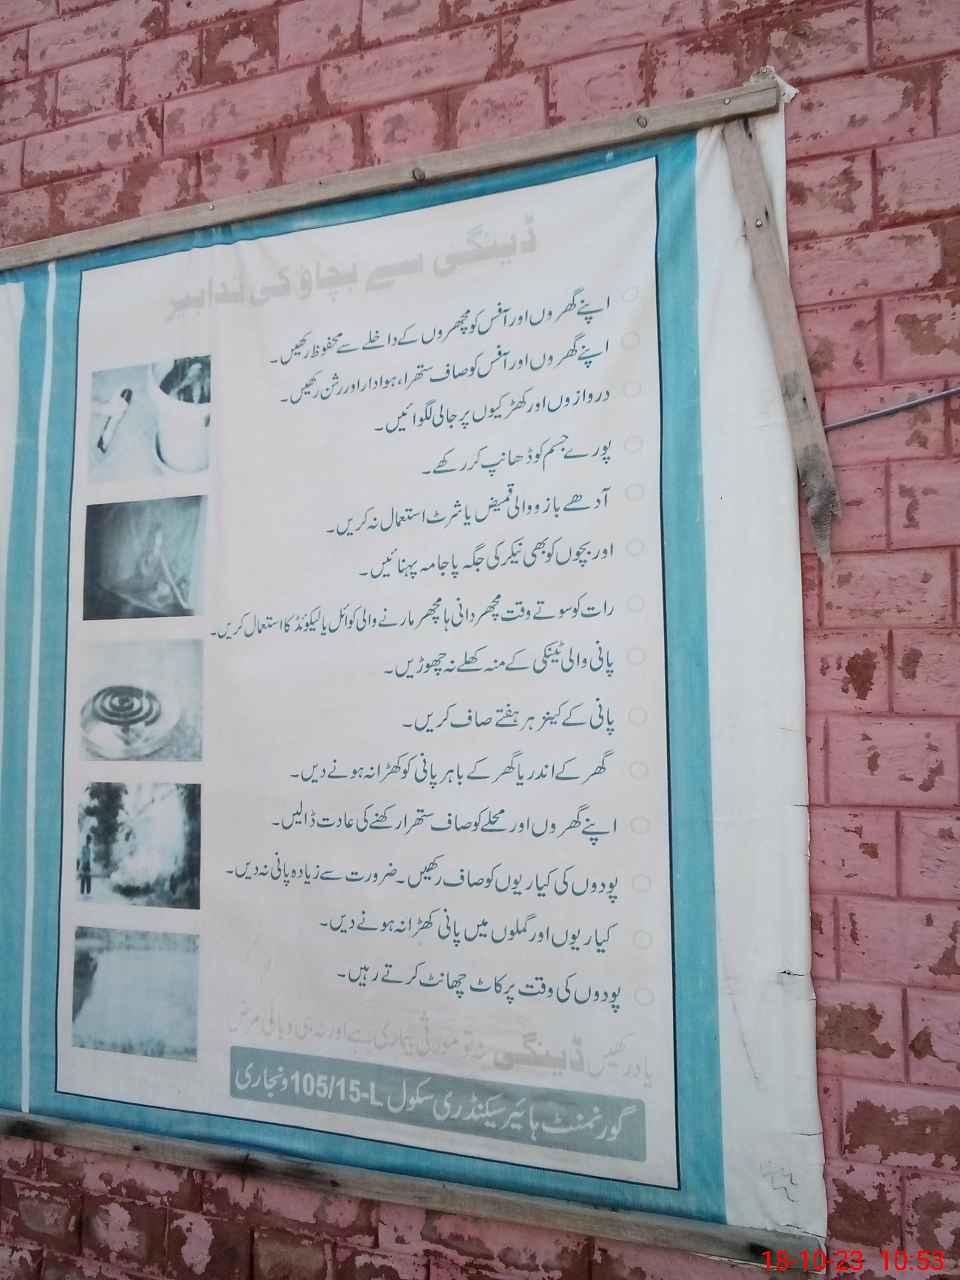 ڈینگی سے بچاؤ کی تدابیر
اپنے گھروں اور آفس کو مچھروں کے داخلے سے محفوظ رکھیں۔
اپنے گھروں اور آفس کو صاف ستھرا، ہوادار اور رشن رکھیں۔
دروازوں اور کھڑکیوں پر جالی لگوائیں۔
پورے جسم کو ڈھانپ کر رکھے۔
آدھے بازو والی قمیض یا شرٹ استعمال نہ کریں۔
اور بچوں کو بھی نیکر کی جگہ پاجامہ پہنائیں۔
رات کو سوتے وقت مچھر دانی یا مچھر مارنے والی کوائل یا لیکوئڈ کا استعمال کریں۔
پانی والی ٹینکی کے منہ کھلے نہ چھوڑیں۔
پانی کے کینز ہر ہفتے صاف کریں۔
گھر کے اندر یا گھر کے باہر پانی کو کھڑا نہ ہونے دیں۔
اپنے گھروں اور محلے کو صاف ستھرا رکھنے کی عادت ڈالیں۔
پودوں کی کیاریوں کو صاف رکھیں۔ ضرورت سے زیادہ پانی نہ دیں۔
کیاریوں اور گملوں میں پانی کھڑا نہ ہونے دیں۔
پودوں کی وقت پر کاٹ چھانٹ کرتے رہیں۔
یاد رکھیں ڈینگی نہ تو موروثی بیماری ہے اور نہ ہی وبائی مرض
گورنمنٹ ہائیر سیکنڈری سکول 105/15-L ونجاری
18-10-23 10:53